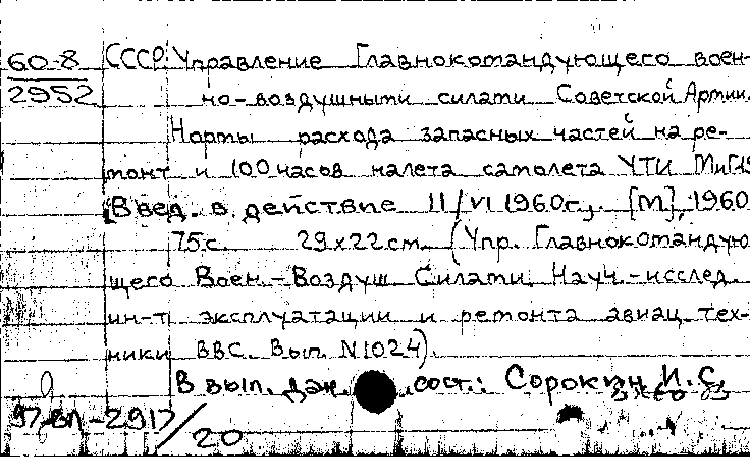 60-8 СССР. Управление Главнокомандующего воен-
2952 но-воздушными силами Советской Армии.
Нормы расхода запасных частей на ре-
монт и 100 часов налета самолета УТИ МиГ-15
[Введ. в действие 11/VI 1960г.]. [М], 1960
75с. 29х22см. (Упр. Главнокомандую-
щего Воен.-Воздуш. Силами. Науч.-исслед.
ин-т эксплуатации и ремонта авиац. тех-
ники ВВС. Вып. N1024).
В вып. дан. сост.: Сорокин И.С.
97-вл-2917/20